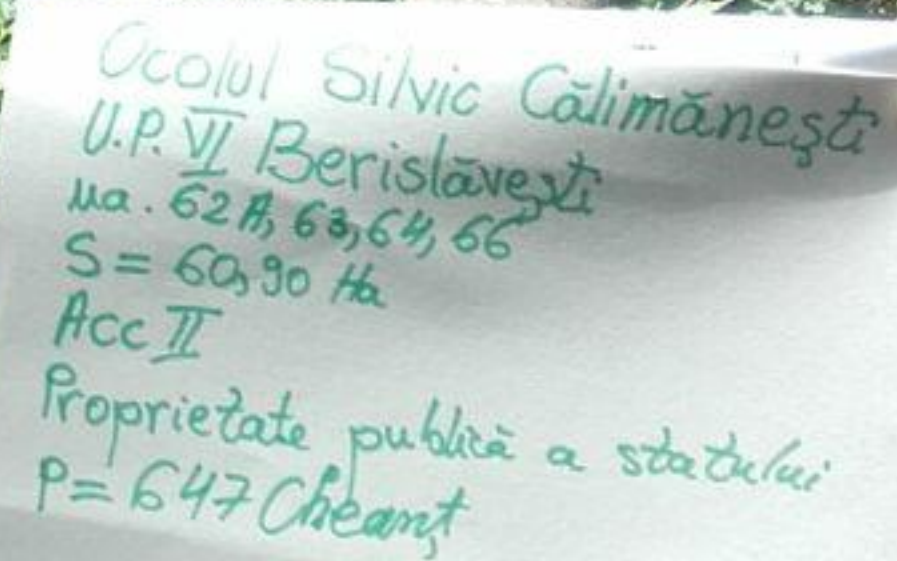 Ocolul Silvic Călimănești
U.P. VI Berislăvești
ua. 62A, 63, 64, 66
S = 60,90 Ha
Acc II
Proprietate publică a statului
P = 647 Cheanț